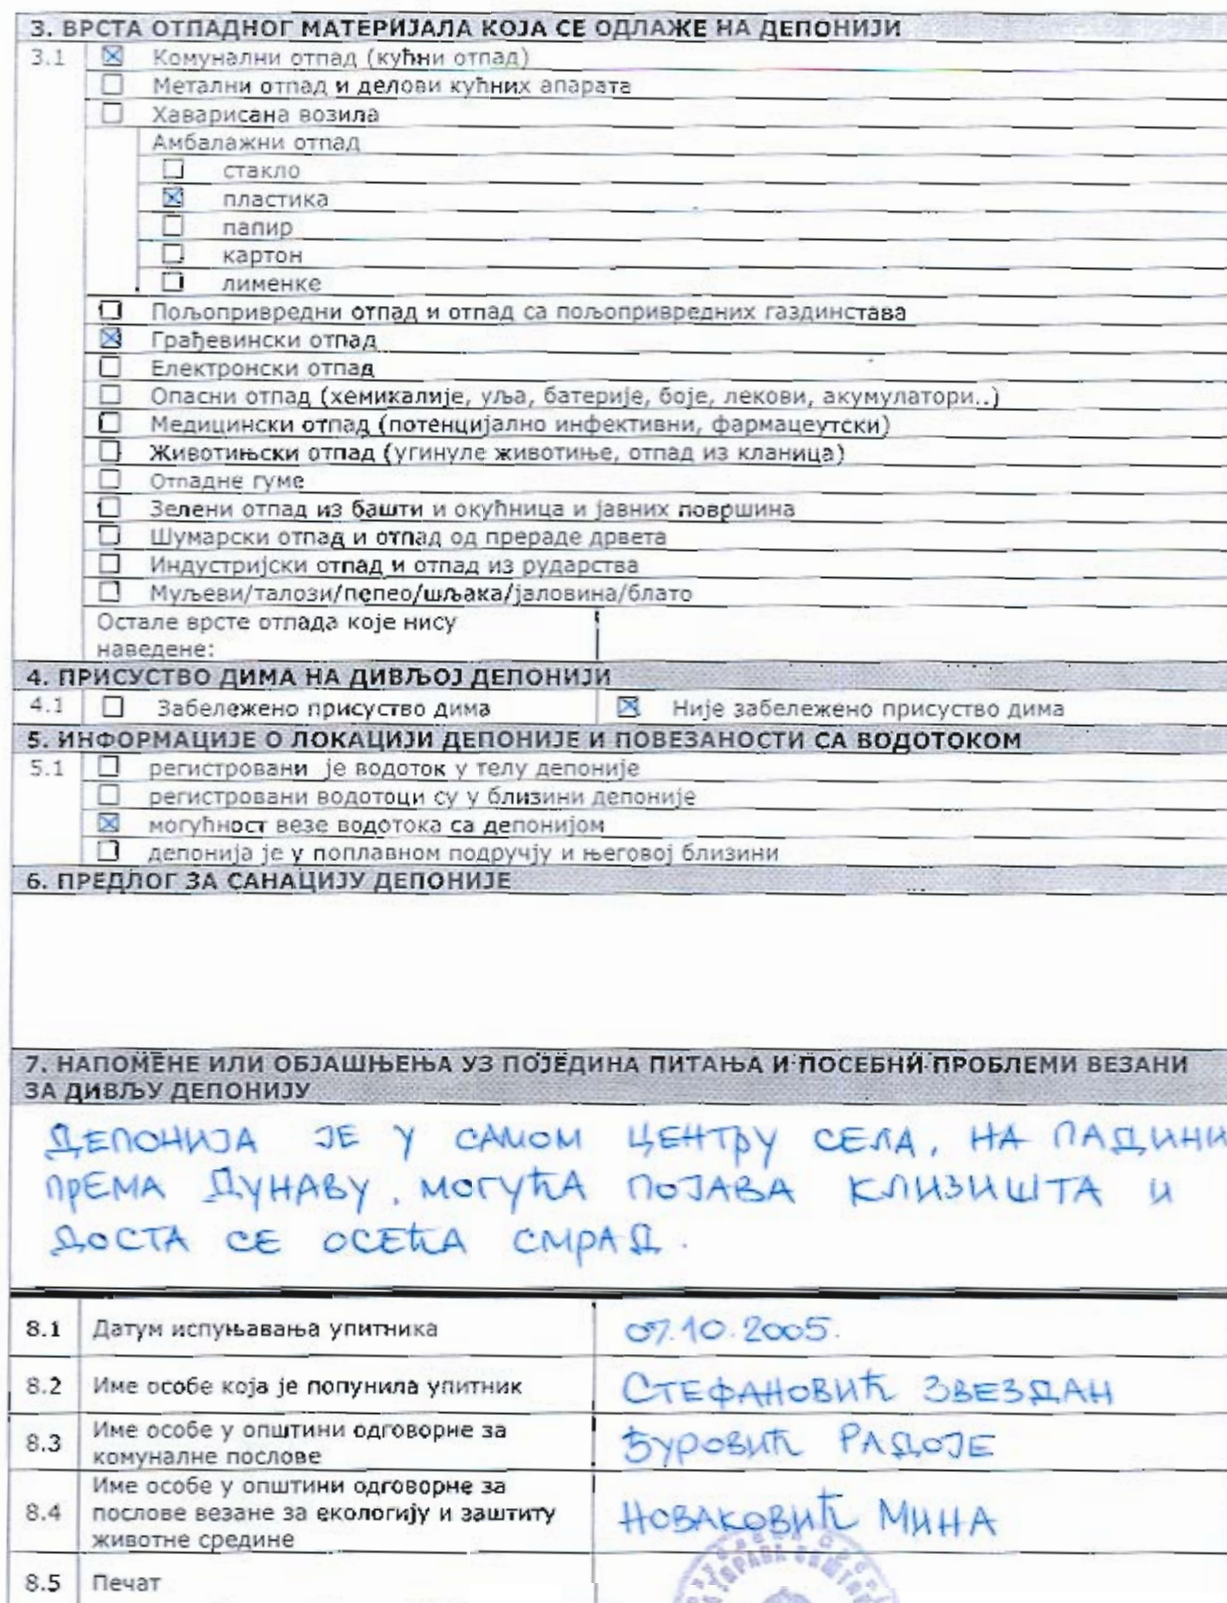 3. ВРСТА ОТПАДНОГ МАТЕРИЈАЛА КОЈА СЕ ОДЛАЖЕ НА ДЕПОНИЈИ
3.1 ☒ Комунални отпад (кућни отпад)
☐ Метални отпад и делови кућних апарата
☐ Хаварисана возила
Амбалажни отпад
☐ стакло
☒ пластика
☐ папир
☐ картон
☐ лименке
☐ Пољопривредни отпад и отпад са пољопривредних газдинстава
☒ Грађевински отпад
☐ Електронски отпад
☐ Опасни отпад (хемикалије, уља, батерије, боје, лекови, акумулатори..)
☐ Медицински отпад (потенцијално инфективни, фармацеутски)
☐ Животињски отпад (угинуле животиње, отпад из кланица)
☐ Отпадне гуме
☐ Зелени отпад из башти и окућница и јавних површина
☐ Шумарски отпад и отпад од прераде дрвета
☐ Индустријски отпад и отпад из рударства
☐ Муљеви/талози/пепео/шљака/јаловина/блато
Остале врсте отпада које нису
наведене:
4. ПРИСУСТВО ДИМА НА ДИВЉОЈ ДЕПОНИЈИ
4.1 ☐ Забележено присуство дима ☒ Није забележено присуство дима
5. ИНФОРМАЦИЈЕ О ЛОКАЦИЈИ ДЕПОНИЈЕ И ПОВЕЗАНОСТИ СА ВОДОТОКОМ
5.1 ☐ регистровани је водоток у телу депоније
☐ регистровани водотоци су у близини депоније
☒ могућност везе водотока са депонијом
☐ депонија је у поплавном подручју и његовој близини
6. ПРЕДЛОГ ЗА САНАЦИЈУ ДЕПОНИЈЕ
7. НАПОМЕНЕ ИЛИ ОБЈАШЊЕЊА УЗ ПОЈЕДИНА ПИТАЊА И ПОСЕБНИ ПРОБЛЕМИ ВЕЗАНИ
ЗА ДИВЉУ ДЕПОНИЈУ
ДЕПОНИЈА ЈЕ У САМОМ ЦЕНТРУ СЕЛА, НА ПАДИНИ
ПРЕМА ДУНАВУ, МОГУЋА ПОЈАВА КЛИЗИШТА И
ДОСТА СЕ ОСЕЋА СМРАД.
8.1 Датум испуњавања упитника 07.10.2005.
8.2 Име особе која је попунила упитник СТЕФАНОВИЋ ЗВЕЗДАН
8.3 Име особе у општини одговорне за
комуналне послове ЂУРОВИЋ РАДОЈЕ
Име особе у општини одговорне за
8.4 послове везане за екологију и заштиту НОВАКОВИЋ МИНА
животне средине
8.5 Печат